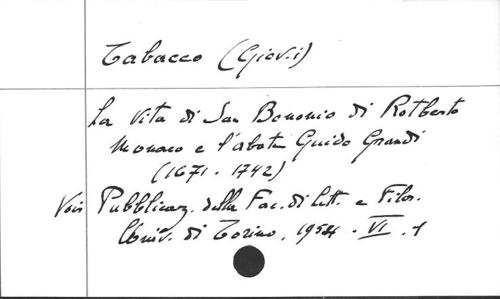 Tabacco (Giov.i)
La Vita di San Bononio di Rotberto
Monaco e l'abate Guido Grandi
(1671-1742)
Voir Pubblicaz. della Fac. di Lett. e Filos.
Univ. di Torino, 1954 - VI. 1